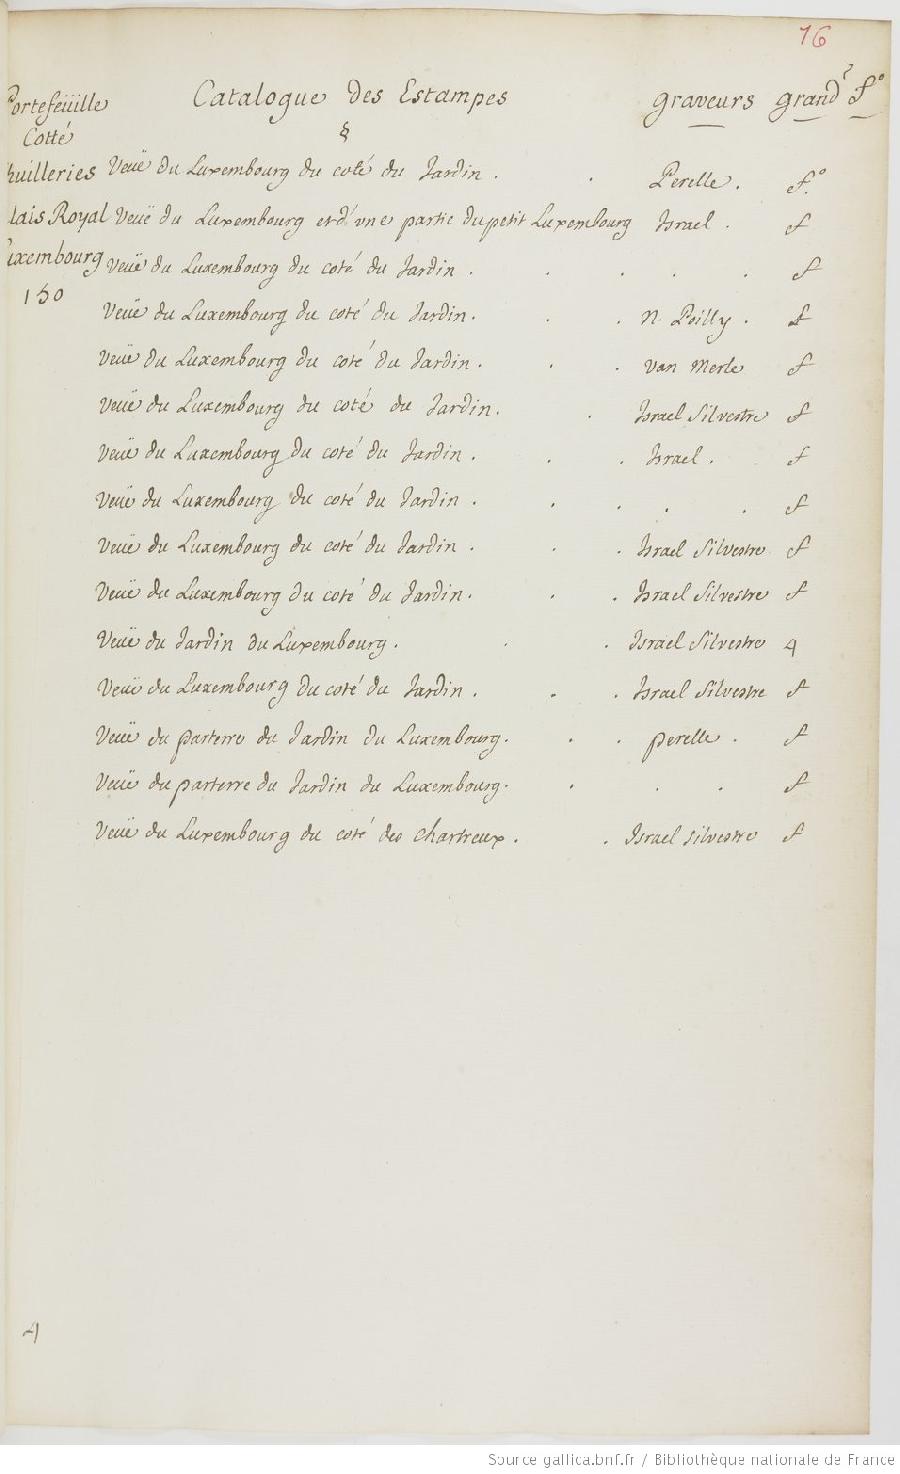 16
Portefeüille Catalogue des Estampes graveurs grand.r f.o
Cotté §
Thuilleries Veüe du Luxembourg du coté du Jardin . . Perelle . f.o
Palais Royal Veüe du Luxembourg et d'vne partie du petit Luxembourg Israel . f
Luxembourg Veüe du Luxembourg du coté du Jardin . . . . . f
150
Veüe du Luxembourg du coté du Jardin . . . N Poilly . f
Veüe du Luxembourg du coté du Jardin . . . van Merle f
Veüe du Luxembourg du coté du Jardin . . Israel Silvestre f
Veüe du Luxembourg du coté du Jardin . . . Israel . f
Veüe du Luxembourg du coté du Jardin . . . . . f
Veüe du Luxembourg du coté du Jardin . . . Israel Silvestre f
Veüe du Luxembourg du coté du Jardin . . . Israel Silvestre f
Veüe du Jardin du Luxembourg . . . Israel Silvestre 4
Veüe du Luxembourg du coté du Jardin . . . Israel Silvestre f
Veüe du parterre du Jardin du Luxembourg . . . perelle . f
Veüe du parterre du Jardin du Luxembourg . . . . f
Veüe du Luxembourg du coté des chartreux . . Israel silvestre f
4
Source gallica.bnf.fr / Bibliothèque nationale de France